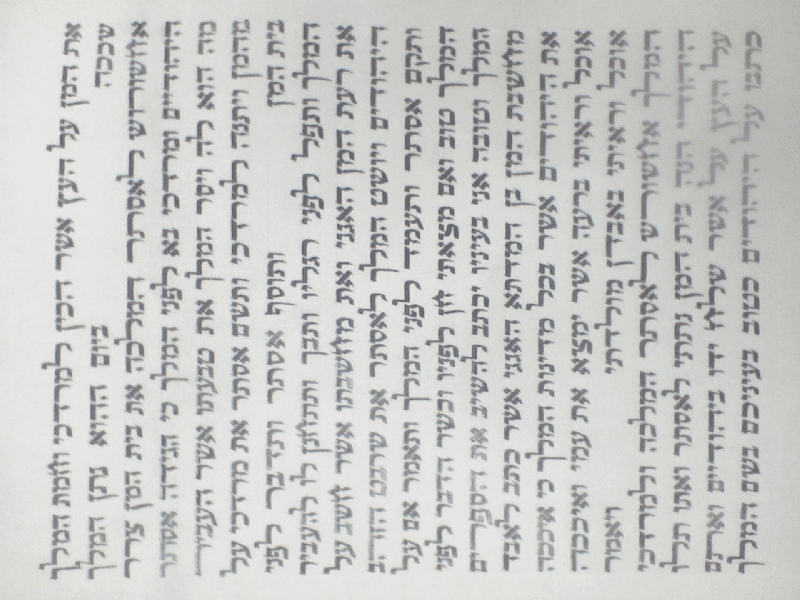 את המן על העץ אשר הכין למרדכי וחמת המלך
שככה ביום ההוא נתן המלך
אחשורוש לאסתר המלכה את בית המן צרר
היהודיים ומרדכי בא לפני המלך כי הגידה אסתר
מה הוא לה ויסר המלך את טבעתו אשר העביר
מהמן ויתנה למרדכי ותשם אסתר את מרדכי על
בית המן ותוסף אסתר ותדבר לפני
המלך ותפל לפני רגליו ותבך ותתחנן לו להעביר
את רעת המן האגגי ואת מחשבתו אשר חשב על
היהודים ויושט המלך לאסתר את שרבט הזהב
ותקם אסתר ותעמד לפני המלך ותאמר אם על
המלך טוב ואם מצאתי חן לפניו וכשר הדבר לפני
המלך וטובה אני בעיניו יכתב להשיב את הספרים
מחשבת המן בן המדתא האגגי אשר כתב לאבד
את היהודים אשר בכל מדינות המלך כי איככה
אוכל וראיתי ברעה אשר ימצא את עמי ואיככה
אוכל וראיתי באבדן מולדתי ויאמר
המלך אחשורש לאסתר המלכה ולמרדכי
היהודי הנה בית המן נתתי לאסתר ואתו תלו
על העץ על אשר שלח ידו ביהודיים ואתם
כתבו על היהודים כטוב בעיניכם בשם המלך